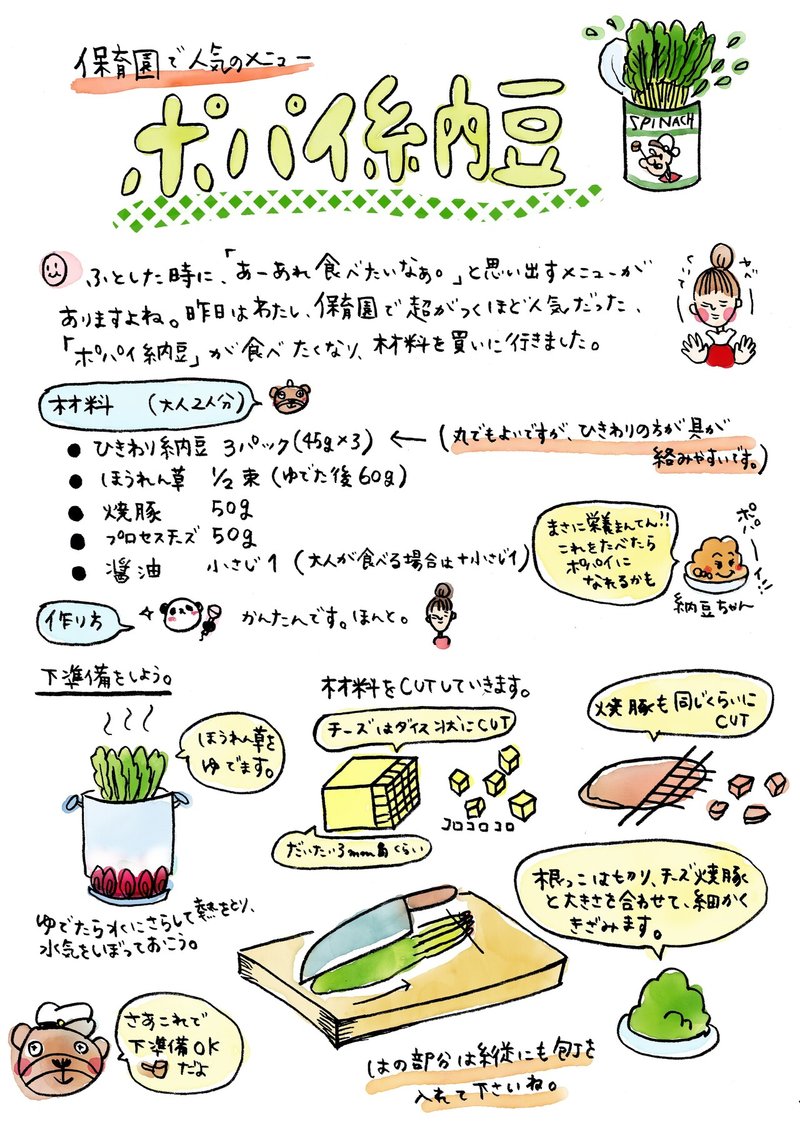 保育園で人気のメニュー
ポパイ納豆
SPINACH
ふとした時に、「あーあれ食べたいなぁ。」と思い出すメニューが
ありますよね。昨日はわたし、保育園で超がつくほど人気だった、
「ポパイ納豆」が食べたくなり、材料を買いに行きました。
材料 (大人2人分)
● ひきわり納豆 3パック(45g×3) ← (丸でもよいですが、ひきわりの方が具が
絡みやすいです。)
● ほうれん草 1/2束 (ゆでた後60g)
● 焼豚 50g
● プロセスチーズ 50g
● 醤油 小さじ1 (大人が食べる場合は+小さじ1)
まさに栄養まんてん!!
これをたべたら
ポパイに
なれるかも
ポパーイ!!
納豆ちゃん
作り方
かんたんです。ほんと。
下準備をしよう。
ほうれん草を
ゆでます。
ゆでたら水にさらして熱をとり、
水気をしぼっておこう。
材料をCUTしていきます。
チーズはダイス状にCUT
コロコロコロ
だいたい3mm角くらい
焼豚も同じくらいに
CUT
根っこはもカり、チーズ焼豚
と大きさを合わせて、細かく
きざみます。
はの部分は縦にも包丁を
入れて下さいね。
さあこれで
下準備OK
だよ